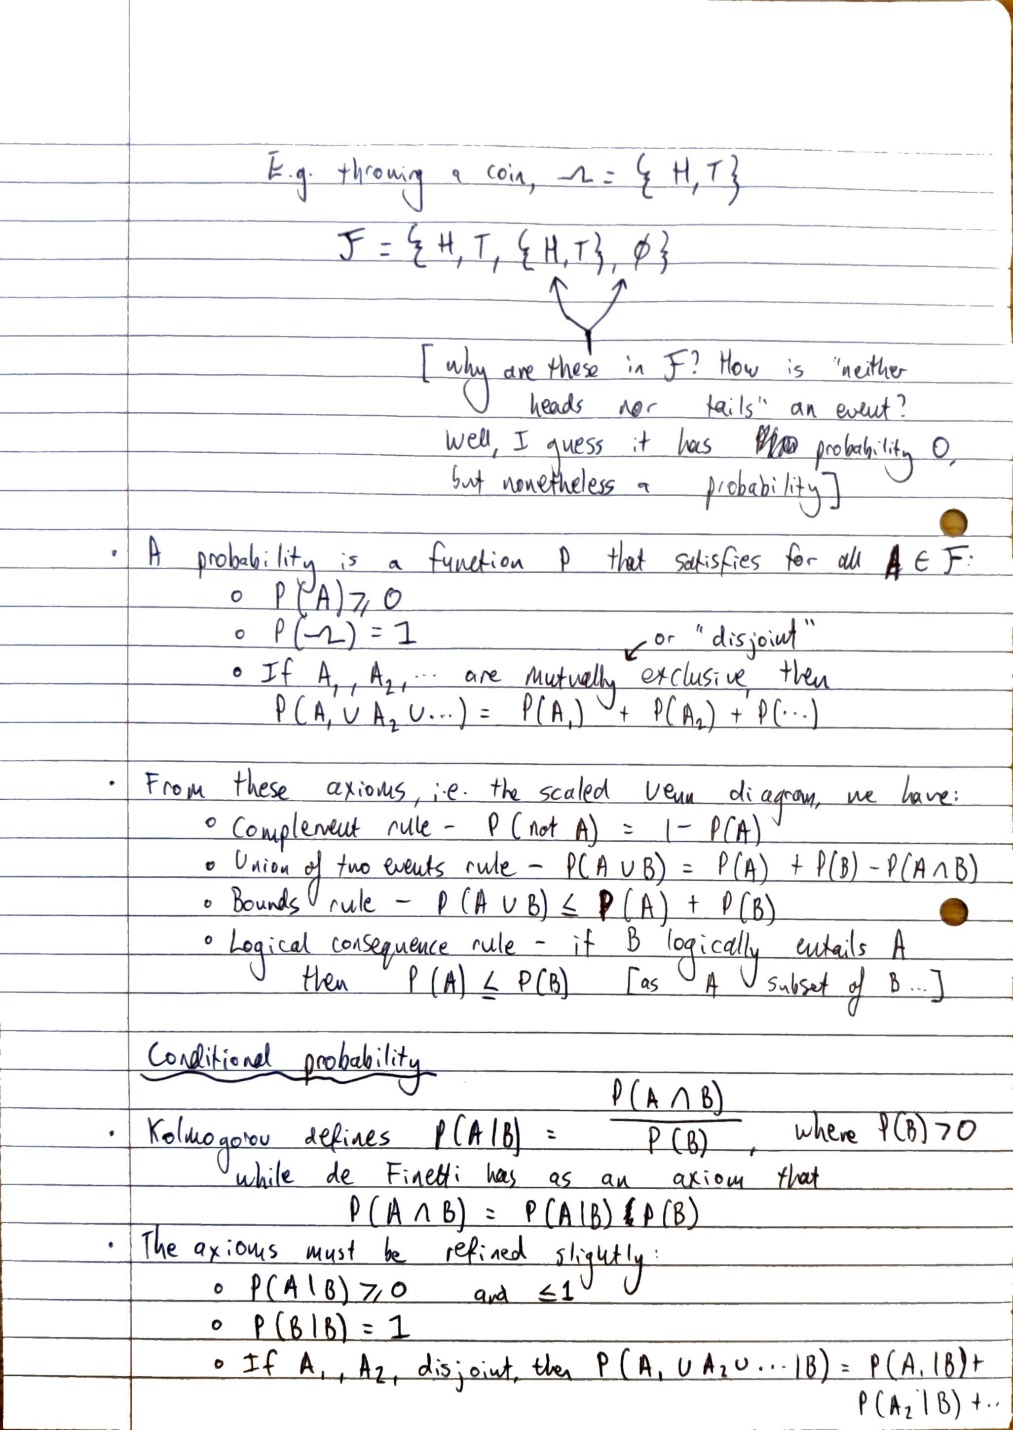 E.g. throwing a coin, Ω = { H, T}
F = { H, T, { H, T}, ∅ }
[ why are these in F? How is "neither
heads nor tails" an event?
Well, I guess it has probability 0,
but nonetheless a probability]
· A probability is a function P that satisfies for all A ∈ F:
o P(A) ⩾ 0
o P(Ω) = 1
or "disjoint"
o If A₁, A₂, ... are mutually exclusive, then
P(A₁ ∪ A₂ ∪...) = P(A₁) + P(A₂) + P(...)
· From these axioms, i.e. the scaled Venn diagram, we have:
o Complement rule - P(not A) = 1 - P(A)
o Union of two events rule - P(A ∪ B) = P(A) + P(B) - P(A ∩ B)
o Bounds rule - P(A ∪ B) ≤ P(A) + P(B)
o Logical consequence rule - if B logically entails A
then P(A) ≤ P(B) [as A subset of B ...]
Conditional probability
P(A ∩ B)
· Kolmogorov defines P(A|B) = P(B), where P(B) > 0
while de Finetti has as an axiom that
P(A ∩ B) = P(A|B) P(B)
· The axioms must be refined slightly:
o P(A|B) ⩾ 0 and ≤ 1
o P(B|B) = 1
o If A₁, A₂, disjoint, then P(A₁ ∪ A₂ ∪ ... |B) = P(A₁|B) +
P(A₂|B) + ..